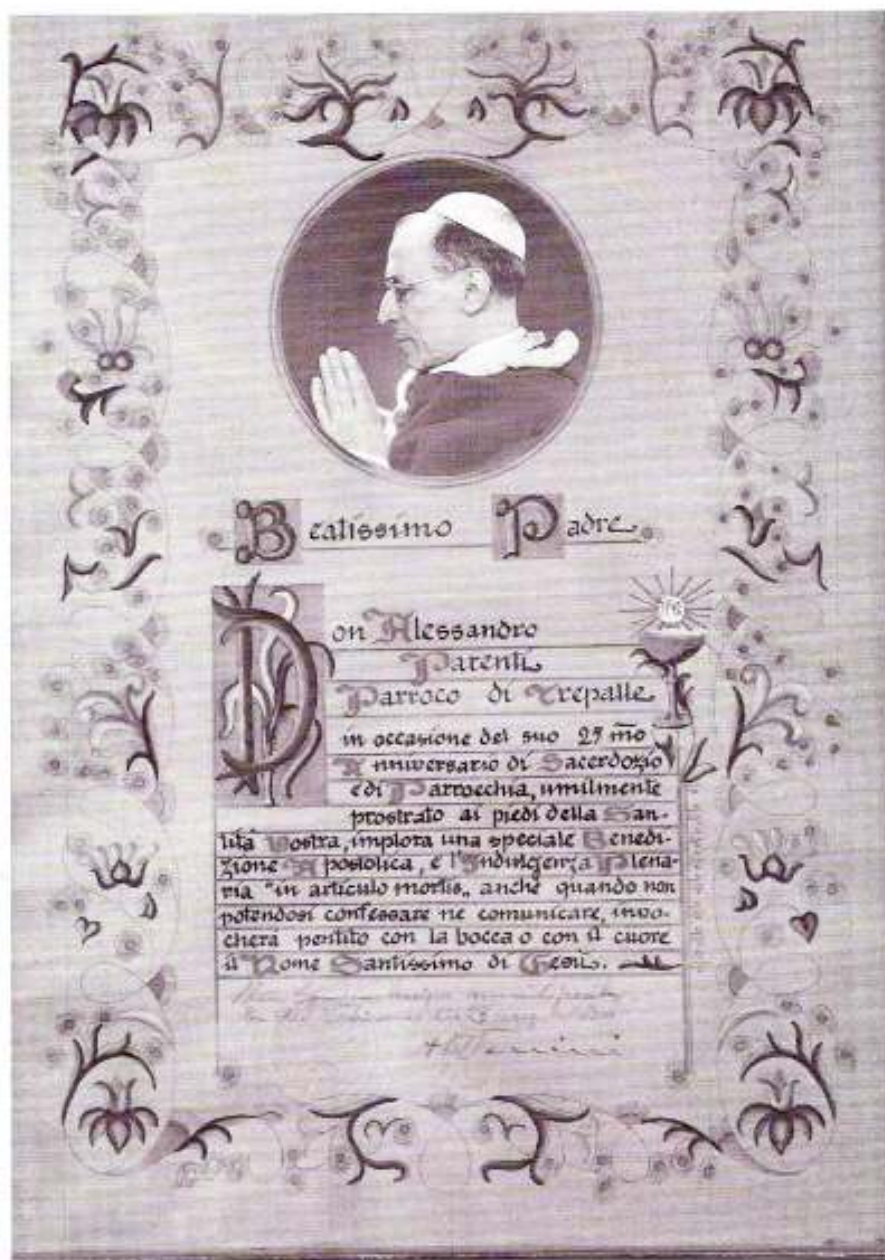 Beatissimo Padre
Don Alessandro
Parenti
Parroco di Trepalle
in occasione del suo 25 mo
Anniversario di Sacerdozio
e di Parrocchia, umilmente
prostrato ai piedi della San-
tità Vostra, implora una speciale Benedi-
zione Apostolica, e l'Indulgenza Plena-
ria "in articulo mortis„ anche quando non
potendosi confessare ne comunicare, invo-
cherà pentito con la bocca o con il cuore
il Nome Santissimo di Gesù.